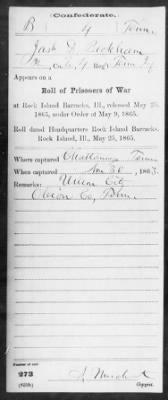 Confederate.
B 4 Tenn.
Jas. D. Beckham
Co. G, 4 Reg't Tenn
Appears on a
Roll of Prisoners of War
at Rock Island Barracks, Ill., released May 25,
1865, under Order of May 9, 1865.
Roll dated Headquarters Rock Island Barracks,
Rock Island, Ill., May 25, 1865.
Where captured Chattanooga Tenn
When captured Nov 30, 1863.
Remarks: Union City
Obion Co, Tenn.
Number of roll:
273
(639b) Copyist.